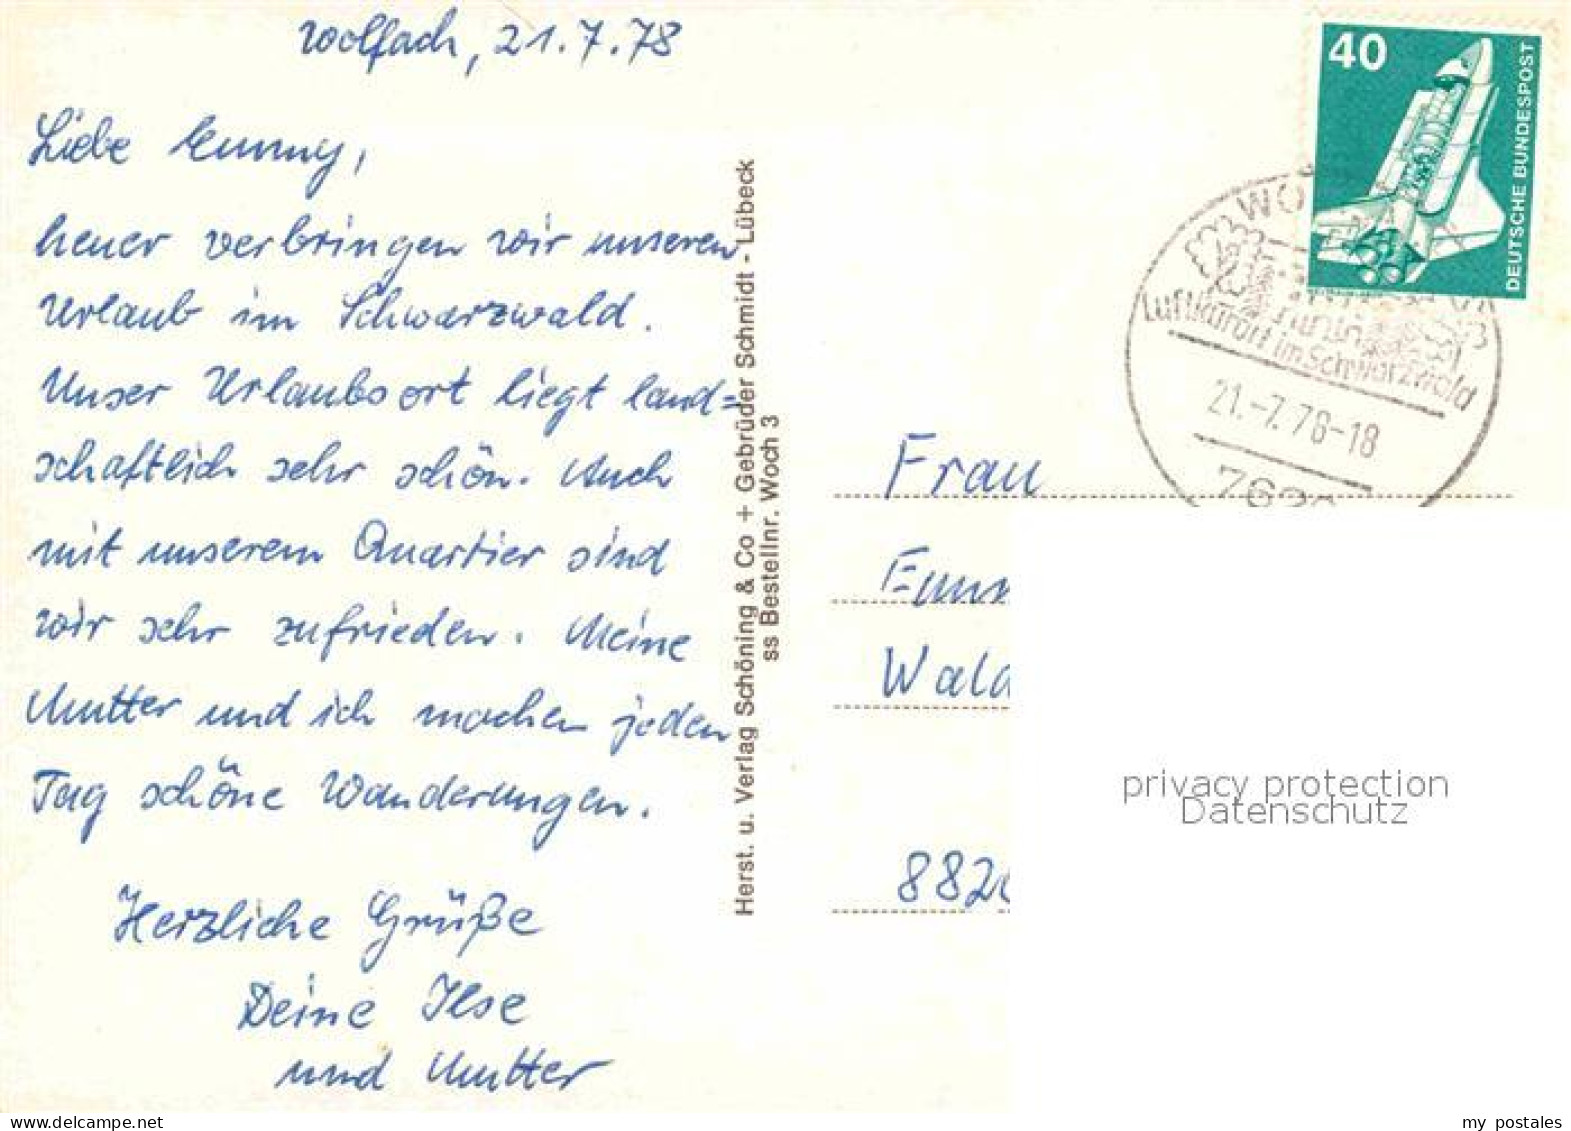 Wolfach, 21.7.78
Liebe Emmy,
heuer verbringen wir unseren
Urlaub im Schwarzwald.
Unser Urlaubsort liegt land=
schaftlich sehr schön. Auch
mit unserem Quartier sind
wir sehr zufrieden. Meine
Mutter und ich machen jeden
Tag schöne Wanderungen.
Herzliche Grüße
Deine Ilse
und Mutter
Herst. u. Verlag Schöning & Co + Gebrüder Schmidt - Lübeck
ss Bestellnr. Woch 3
40
DEUTSCHE BUNDESPOST
WO
Luftkurort im Schwarzwald
21.-7.78-18
Frau
Emm
Wald
882
privacy protection
Datenschutz
my postales